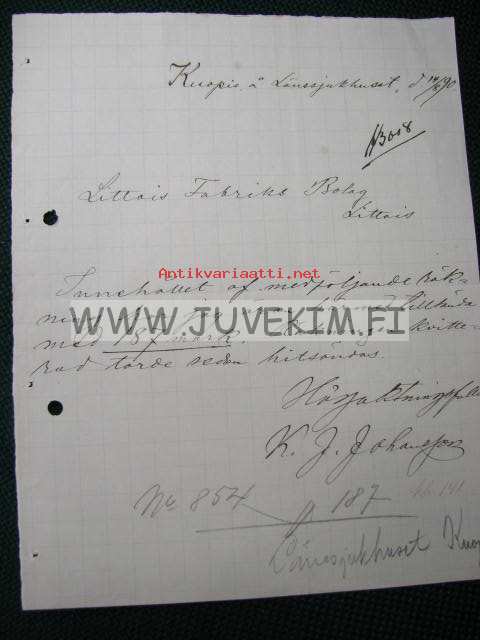 Kuopio, å Länssjukhuset, d 14/6 90
3008
Littois Fabriks Bolag
Littois
Antikvariaatti.net
Innehållet af medföljande räk-
tillsända
WWW.JUVEKIM.FI
med 187 mark. kvitte-
rad torde sedan hitsändas.
Högaktningsfullt
K. J. Johansson
No 854 187
Länssjukhuset Kuop